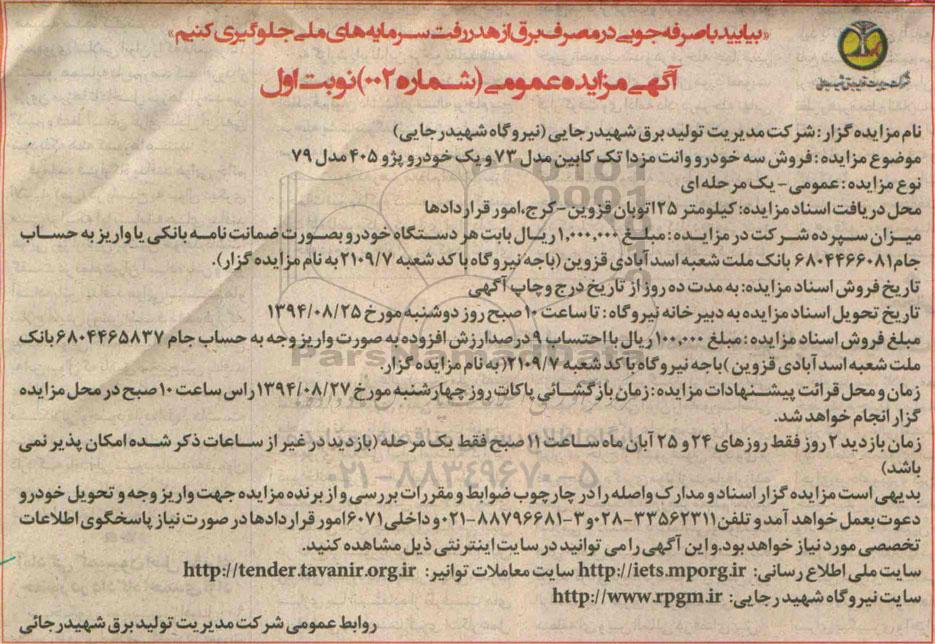 «بیایید با صرفه جویی در مصرف برق از هدر رفت سرمایه های ملی جلوگیری کنیم»
آگهی مزایده عمومی (شماره ۰۰۲) نوبت اول
شرکت مدیریت تولید برق شهید رجایی
نام مزایده گزار: شرکت مدیریت تولید برق شهید رجایی (نیروگاه شهید رجایی)
موضوع مزایده: فروش سه خودرو وانت مزدا تک کابین مدل ۷۳ و یک خودرو پژو ۴۰۵ مدل ۷۹
نوع مزایده: عمومی - یک مرحله ای
محل دریافت اسناد مزایده: کیلومتر ۲۵ اتوبان قزوین - کرج، امور قراردادها
میزان سپرده شرکت در مزایده: مبلغ ۱,۰۰۰,۰۰۰ ریال بابت هر دستگاه خودرو بصورت ضمانت نامه بانکی یا واریز به حساب
جام ۶۸۰۴۴۶۶۰۸۱ بانک ملت شعبه اسد آبادی قزوین (باجه نیروگاه با کد شعبه ۲۱۰۹/۷ به نام مزایده گزار).
تاریخ فروش اسناد مزایده: به مدت ده روز از تاریخ درج و چاپ آگهی
تاریخ تحویل اسناد مزایده به دبیرخانه نیروگاه: تا ساعت ۱۰ صبح روز دوشنبه مورخ ۱۳۹۴/۰۸/۲۵
مبلغ فروش اسناد مزایده: مبلغ ۱۰۰,۰۰۰ ریال با احتساب ۹ درصد ارزش افزوده به صورت واریز وجه به حساب جام ۶۸۰۴۴۶۵۸۳۷ بانک
ملت شعبه اسد آبادی قزوین )باجه نیروگاه با کد شعبه ۲۱۰۹/۷( به نام مزایده گزار.
زمان و محل قرائت پیشنهادات مزایده: زمان بازگشائی پاکات روز چهارشنبه مورخ ۱۳۹۴/۰۸/۲۷ راس ساعت ۱۰ صبح در محل مزایده
گزار انجام خواهد شد.
زمان بازدید ۲ روز فقط روزهای ۲۴ و ۲۵ آبان ماه ساعت ۱۱ صبح فقط یک مرحله (بازدید در غیر از ساعات ذکر شده امکان پذیر نمی
باشد)
بدیهی است مزایده گزار اسناد و مدارک واصله را در چارچوب ضوابط و مقررات بررسی و از برنده مزایده جهت واریز وجه و تحویل خودرو
دعوت بعمل خواهد آمد و تلفن ۳۳۵۶۲۳۱۱-۰۲۸ و ۳-۸۸۷۹۶۶۸۱-۰۲۱ و داخلی ۶۰۷۱ امور قراردادها در صورت نیاز پاسخگوی اطلاعات
تخصصی مورد نیاز خواهد بود. و این آگهی را می توانید در سایت اینترنتی ذیل مشاهده کنید.
سایت ملی اطلاع رسانی: http://iets.mporg.ir سایت معاملات توانیر: http://tender.tavanir.org.ir
سایت نیروگاه شهید رجایی: http://www.rpgm.ir
روابط عمومی شرکت مدیریت تولید برق شهید رجائی
ParsNamadData
۰۲۱-۸۸۳۴۹۶۷۰-۵